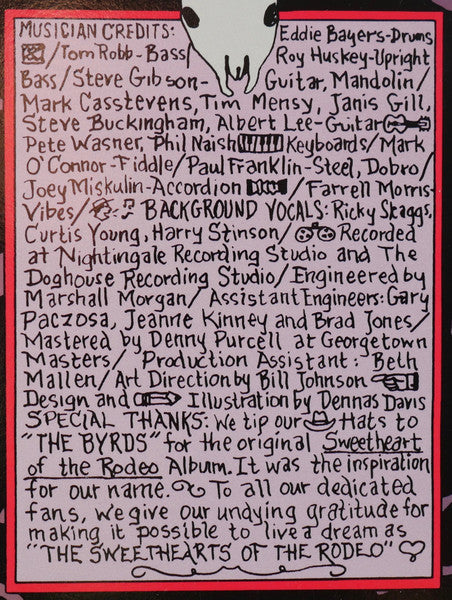 MUSICIAN CREDITS: Eddie Bayers-Drums
/Tom Robb-Bass/ Roy Huskey-Upright
Bass/Steve Gibson- Guitar, Mandolin/
Mark Casstevens, Tim Mensy, Janis Gill,
Steve Buckingham, Albert Lee-Guitar
Pete Wasner, Phil Naish Keyboards/Mark
O'Connor-Fiddle/Paul Franklin-Steel, Dobro/
Joey Miskulin-Accordion /Farrell Morris-
Vibes/ BACKGROUND VOCALS: Ricky Skaggs,
Curtis Young, Harry Stinson/ Recorded
at Nightingale Recording Studio and The
Doghouse Recording Studio/Engineered by
Marshall Morgan/Assistant Engineers: Gary
Paczosa, Jeanne Kinney and Brad Jones/
Mastered by Denny Purcell at Georgetown
Masters/ Production Assistant: Beth
Mallen/Art Direction by Bill Johnson
Design and Illustration by Dennas Davis
SPECIAL THANKS: We tip our Hats to
"THE BYRDS" for the original Sweetheart
of the Rodeo Album. It was the inspiration
for our name. To all our dedicated
fans, we give our undying gratitude for
making it possible to live a dream as
"THE SWEETHEARTS OF THE RODEO"